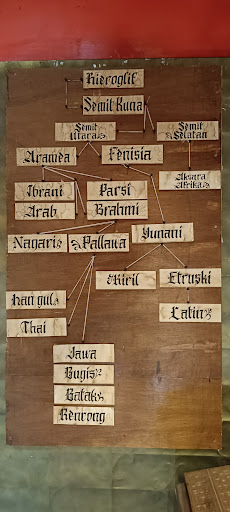 Hieroglif
Semit Kuna
Semit
Utara
Semit
Selatan
Aramea
Fenisia
Aksara
Afrika
Ibrani
Parsi
Arab
Brahmi
Nagari
Pallawa
Yunani
Kiril
Etruski
Han gul
Latin
Thai
Jawa
Bugis
Batak
Rencong